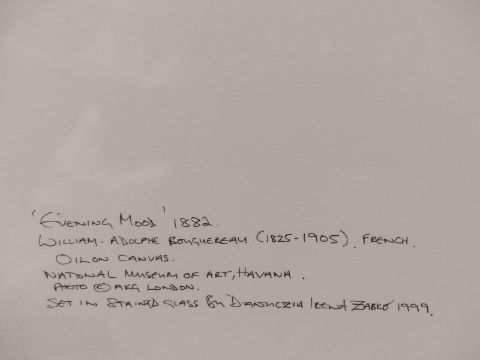 'Evening Mood' 1882.
William-Adolphe Bouguereau (1825-1905). French.
Oil on canvas.
National Museum of Art, Havana.
Photo © AKG London.
Set in stained glass by Irena 1999.